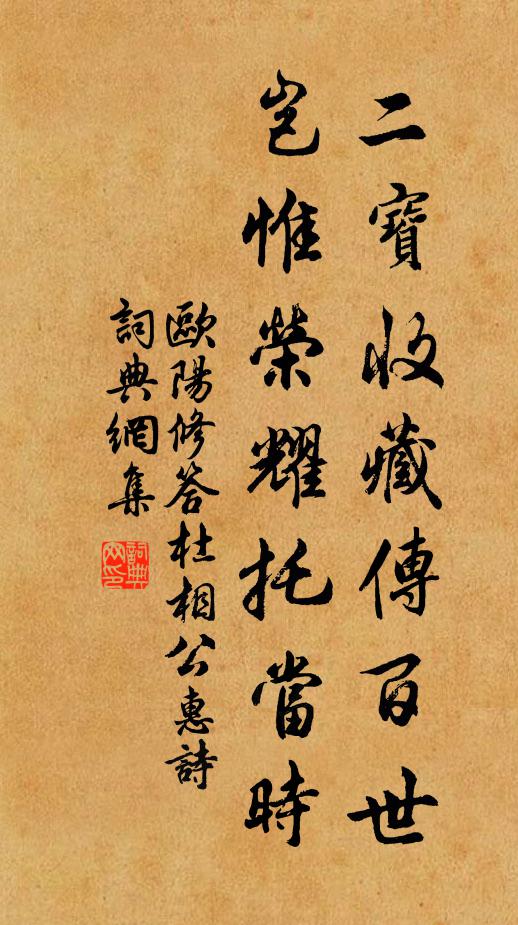 二寶收藏傳百世
豈惟榮耀托當時
歐陽修答杜相公惠詩
詞典網集
詞典
网印